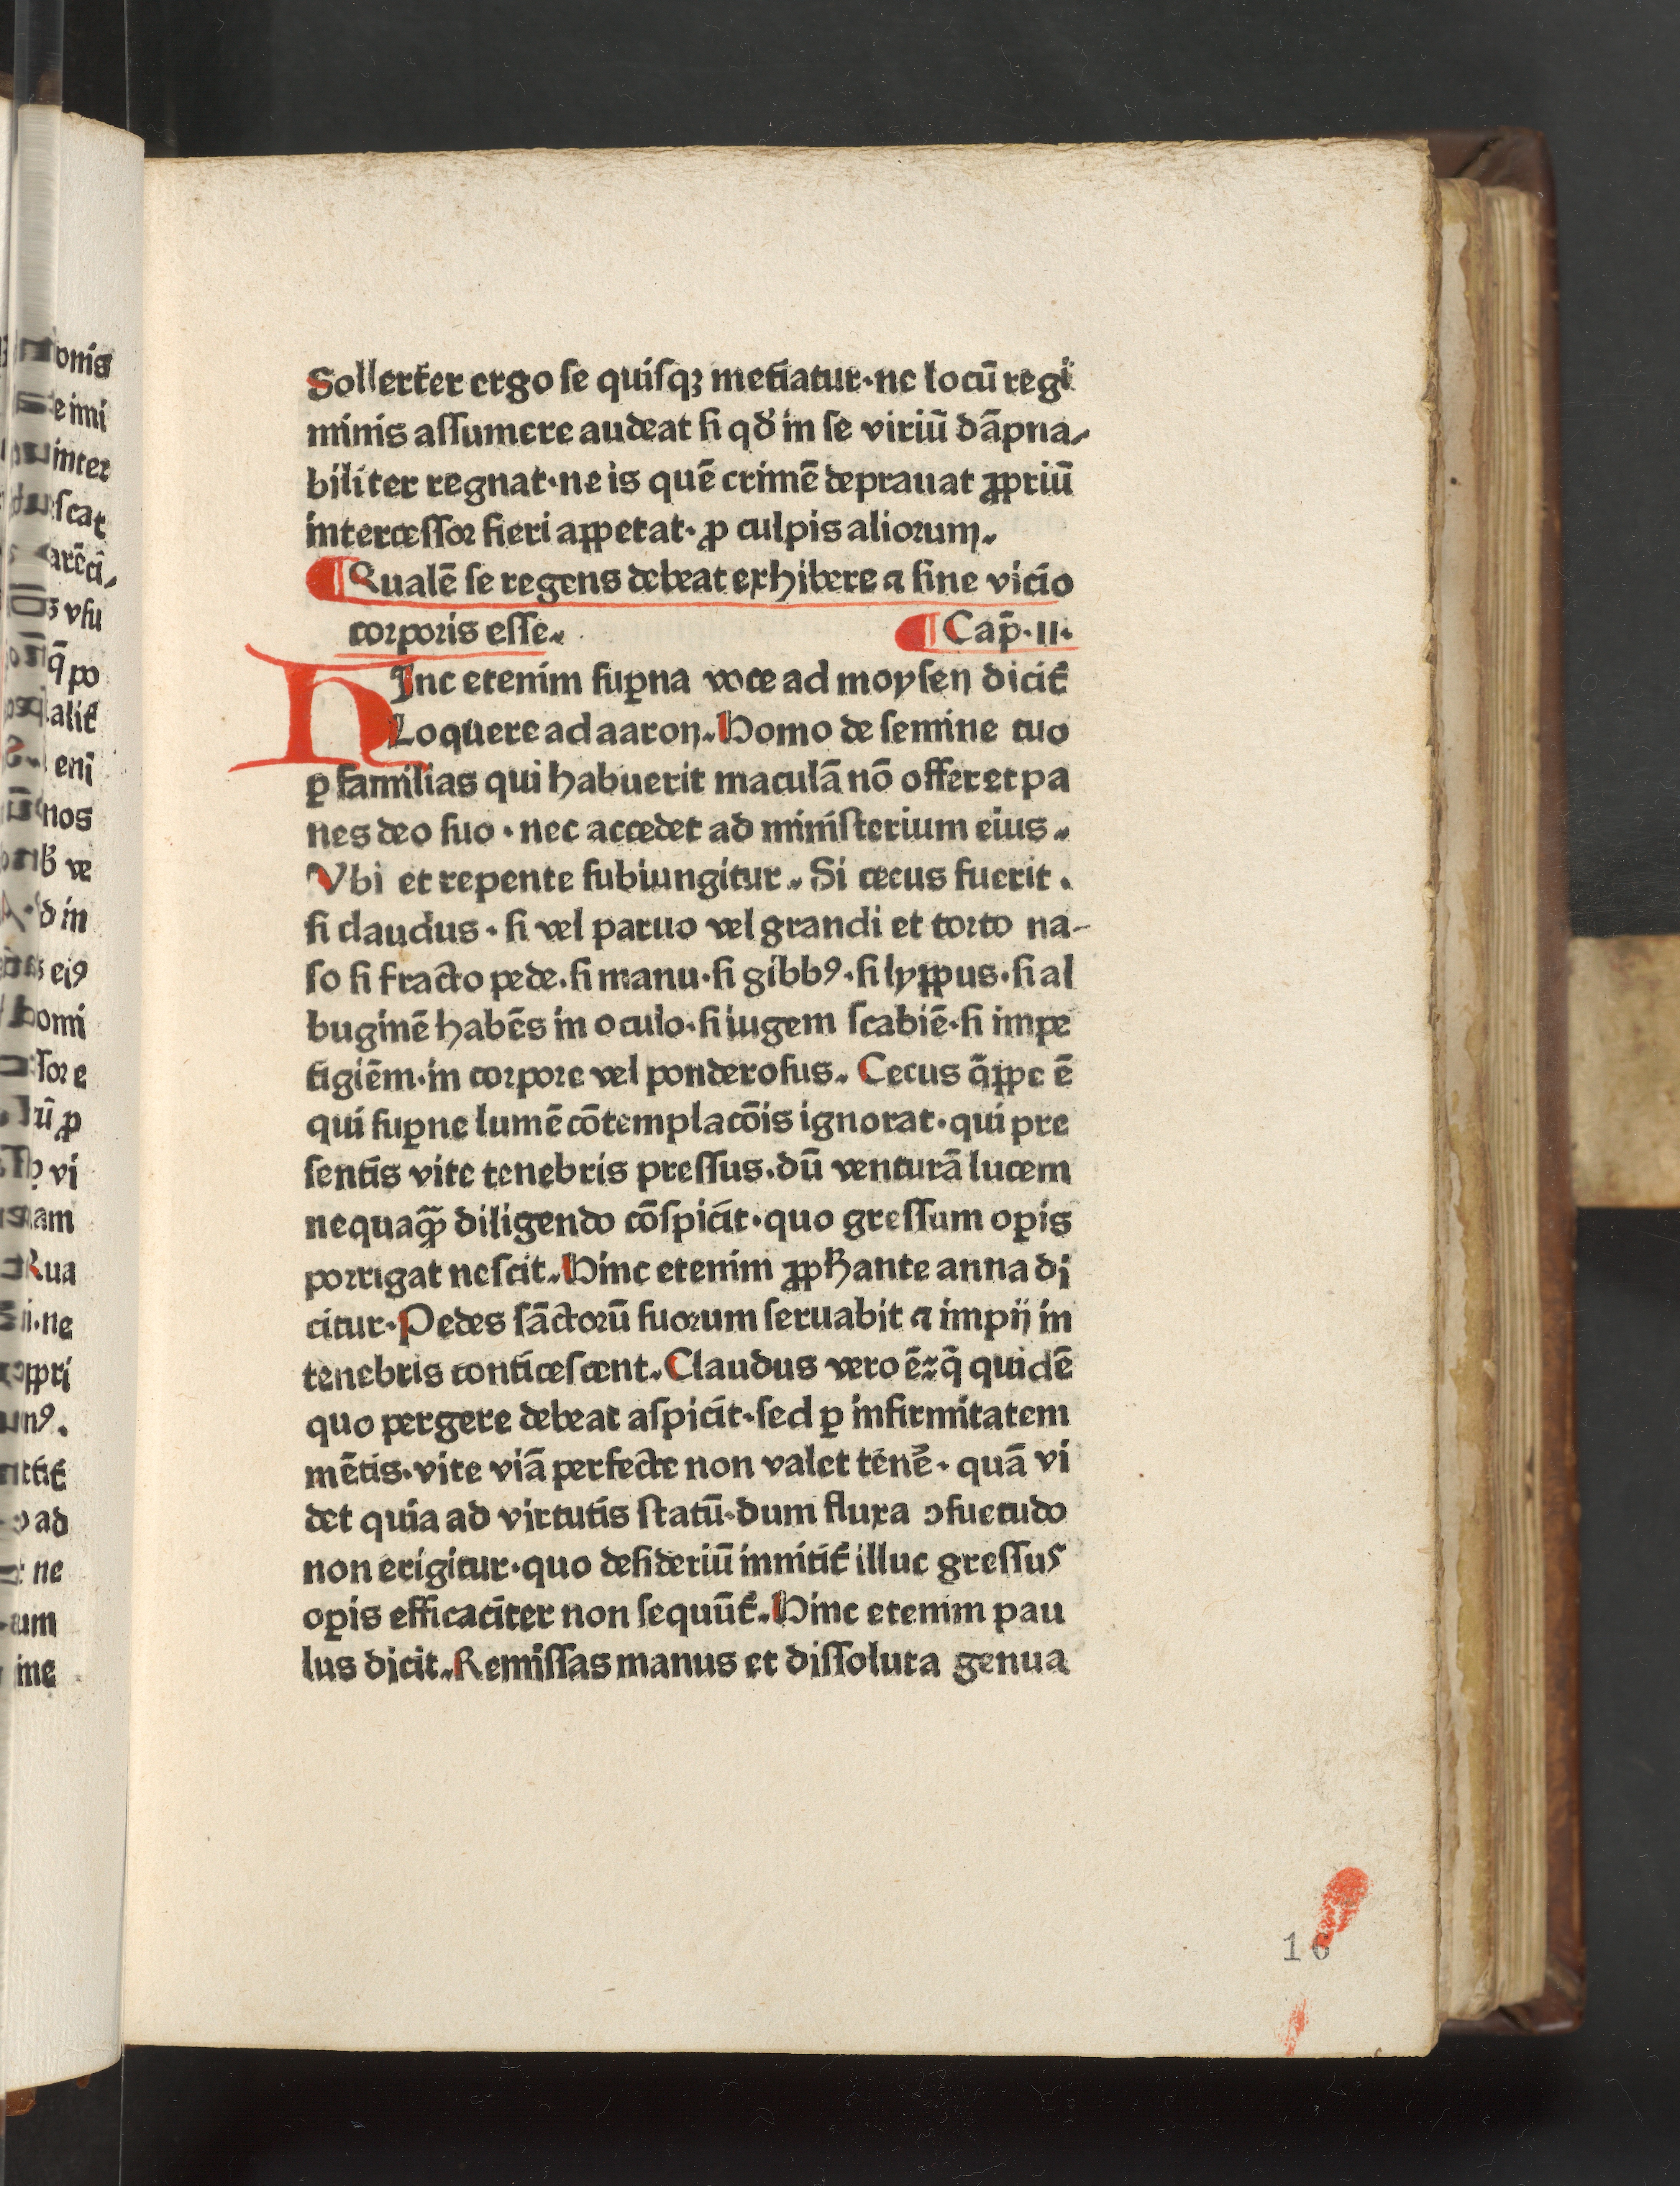 Sollerter ergo se quisqꝫ metiatur·ne locū regi
minis assumere audeat si qđ in se viciū dāpna⸗
biliter regnat·ne is quē crimē deprauat ꝓpriū
intercessor fieri appetat·ꝓ culpis aliorum.
¶Qualē se regens debeat exhibere ⁊ sine vicio
corporis esse. ¶Cap̄·II·
HInc etenim suꝑna voce ad moysen dicit̄
Loquere ad aaron. Homo de semine tuo
ꝑ familias qui habuerit maculā nō offeret pa
nes deo suo·nec accedet ad ministerium eius.
Vbi et repente subiungitur. Si cecus fuerit.
si claudus·si vel paruo vel grandi et torto na-
so si fracto pede.si manu·si gibbꝰ·si lyppus·si al
buginē habēs in oculo·si iugem scabiē·si impe
tigiēm·in corpore vel ponderosus. Cecus q̄ppe ē
qui suꝑne lumē cōtemplacōis ignorat·qui pre
sentis vite tenebris pressus·dū venturā lucem
nequaꝙ̄ diligendo cōspicit·quo gressum oꝑis
porrigat nescit. Hinc etenim ꝓpħante anna di
citur·Pedes sāctorū suorum seruabit ⁊ impij in
tenebris conticescent. Claudus vero ē·q̄ quidē
quo pergere debeat aspicit·sed ꝑ infirmitatem
mētis·vite viā perfecte non valet tenē·quā vi
det quia ad virtutis statū·dum fluxa ↄsuetudo
non erigitur·quo desideriū innitit̄ illuc gressus
oꝑis efficaciter non sequūt̄. Hinc etenim pau
lus dicit. Remissas manus et dissoluta genua
16